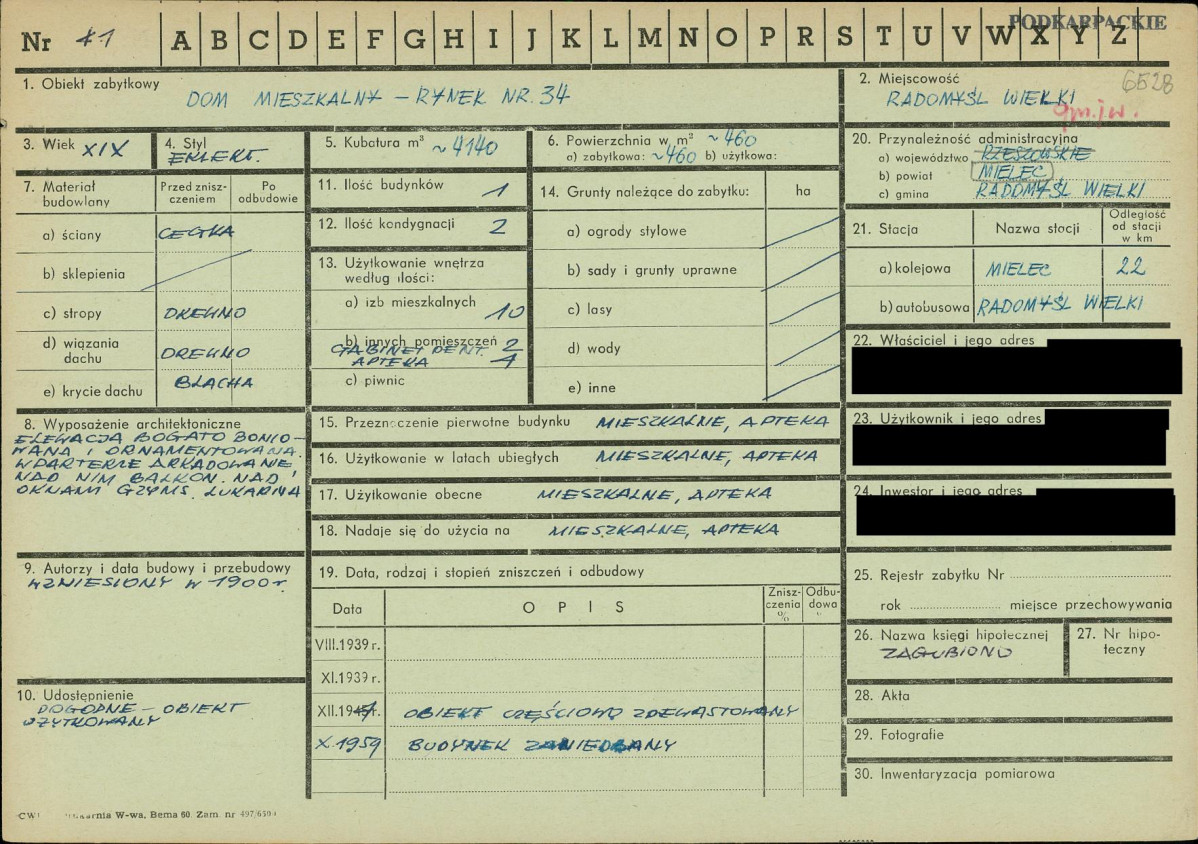 Nr 41 A B C D E F G H I J K L M N O P R S T U V W X Y Z
PODKARPACKIE
6528
1. Obiekt zabytkowy
DOM MIESZKALNY – RYNEK NR. 34
2. Miejscowość
RADOMYŚL WIELKI
gm. j.w.
3. Wiek XIX
4. Styl
EKLEKT.
5. Kubatura m³ ~4140
6. Powierzchnia w m² ~460
a) zabytkowa: ~460 b) użytkowa:
7. Materiał budowlany
Przed znisz-
czeniem
Po
odbudowie
a) ściany CEGŁA
b) sklepienia
c) stropy DREWNO
d) wiązania
dachu DREWNO
e) krycie dachu BLACHA
8. Wyposażenie architektoniczne
ELEWACJA BOGATO BONIO-
WANA I ORNAMENTOWANA.
W PARTERZE ARKADOWANIE,
NAD NIM BALKON. NAD
OKNAMI GZYMS. LUKARNA
9. Autorzy i data budowy i przebudowy
WZNIESIONY W 1900 r.
10. Udostępnienie
DOGODNE – OBIEKT
UŻYTKOWANY
11. Ilość budynków 1
12. Ilość kondygnacji 2
13. Użytkowanie wnętrza
według ilości:
a) izb mieszkalnych 10
b) innych pomieszczeń
GABINET DENT. 2
APTEKA 4
c) piwnic
14. Grunty należące do zabytku: ha
a) ogrody stylowe
b) sady i grunty uprawne
c) lasy
d) wody
e) inne
15. Przeznaczenie pierwotne budynku MIESZKALNE, APTEKA
16. Użytkowanie w latach ubiegłych MIESZKALNE, APTEKA
17. Użytkowanie obecne MIESZKALNE, APTEKA
18. Nadaje się do użycia na MIESZKALNE, APTEKA
19. Data, rodzaj i stopień zniszczeń i odbudowy
Data
OPIS
Znisz-
czenia
%
Odbu-
dowa
VIII.1939 r.
XI.1939 r.
XII.19 OBIEKT CZĘŚCIOWO ZDEWASTOWANY
X.1959 BUDYNEK ZANIEDBANY
20. Przynależność administracyjna
a) województwo RZESZOWSKIE
b) powiat MIELEC
c) gmina RADOMYŚL WIELKI
21. Stacja
Nazwa stacji
Odległość
od stacji
w km
a) kolejowa MIELEC 22
b) autobusowa RADOMYŚL WIELKI
22. Właściciel i jego adres
23. Użytkownik i jego adres
24. Inwestor i jego adres
25. Rejestr zabytku Nr
rok miejsce przechowywania
26. Nazwa księgi hipotecznej
ZAGUBIONO
27. Nr hipo-
teczny
28. Akta
29. Fotografie
30. Inwentaryzacja pomiarowa
W-wa, Bema 60. Zam. nr